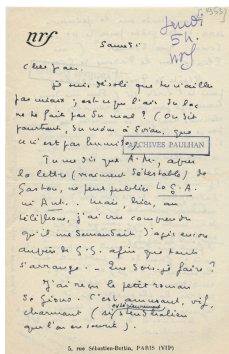 [1953?]
nrf
Jeudi
5h.
nrf
Samedi
Cher Jean,
je suis désolé que tu n'ailles
pas mieux ; est-ce que l'air du lac
ne te fait pas du mal ? (On dit
pourtant, du moins à Evian, que
ce n'est pas humide
ARCHIVES PAULHAN
Tu me dis que A.M., après
la lettre (vraiment détestable) de
Gaston, ne peut publier Le C.A.
ni Ant... Mais, hier, au
téléphone, j'ai cru comprendre
qu'il me demandait d'agir encore
auprès de G.G. afin que tout
s'arrange. - Que dois-je faire ?
J'ai reçu le petit roman
de Giono. C'est amusant, vif,
charmant (si stendhalien
que l'on en sourit).
5, rue Sébastien-Bottin, PARIS (VIIe)